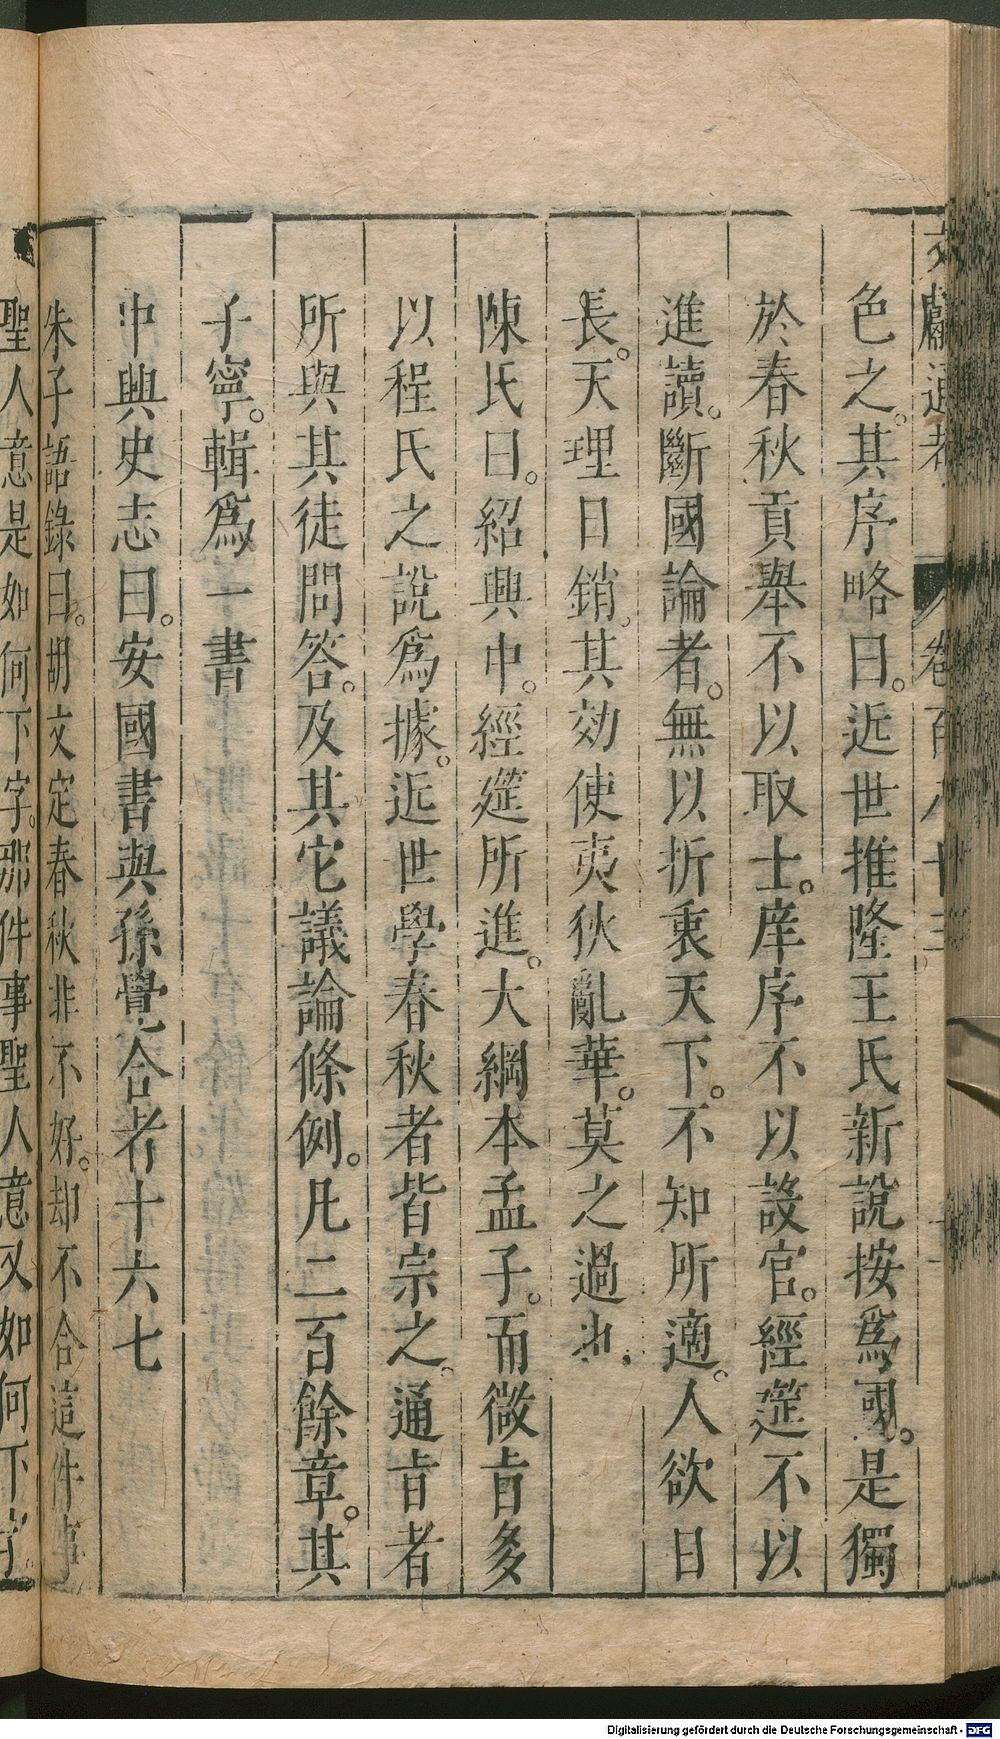 文獻通考 卷百八十三
色之。其序略曰。近世推隆王氏新說按為國。是獨
於春秋貢舉不以取士。庠序不以設官。經筵不以
進讀。斷國論者。無以折衷天下。不知所適。人欲日
長。天理日銷。其効使夷狄亂華。莫之遏也
陳氏曰。紹興中。經筵所進。大綱本孟子。而微旨多
以程氏之說為據。近世學春秋者皆宗之。通旨者
所與其徒問答。及其它議論條例。凡二百餘章。其
子寧。輯為一書
中興史志曰。安國書與孫覺合者十六七
朱子語錄曰。胡文定春秋非不好。却不合這件事
聖人意是如何下字。那件事聖人意又如何下字。
Digitalisierung gefördert durch die Deutsche Forschungsgemeinschaft - DFG